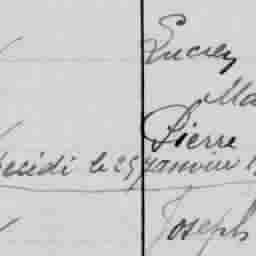 Lucien
Ma
Pierre
Décidé le 25 Janvier 1
Joseph